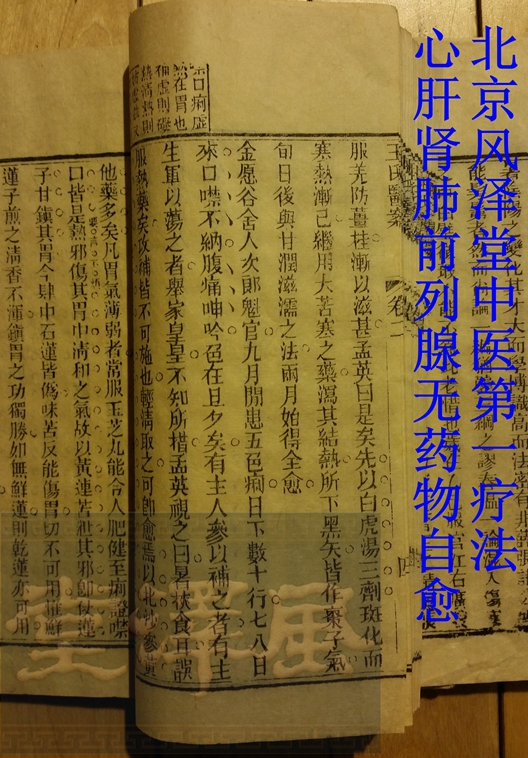 北京风泽堂中医第一疗法
心肝肾肺前列腺无药物自愈
王氏醫案 卷二
服羌防薑桂漸以滋甚孟英曰是矣先以白虎湯三劑斑化而
寒熱漸已繼用大苦寒之藥瀉其結熱所下黑矢皆作棗子氣
旬日後與甘潤滋濡之法兩月始得全愈
金愿谷舍人次郎魁官九月間患五色痢日下數十行七八日
來口噤不納腹痛呻吟危在旦夕矣有主人參以補之者有主
生軍以蕩之者舉家皇皇不知所措孟英視之曰暑挾食耳誤
服熱藥矣攻補皆不可施也輕清取之可即愈焉以北沙參黃
口痢虛
熱在胃也
補虛則礙
熱清熱則
他藥多矣凡胃氣薄弱者常服玉芝丸能令人肥健至痢證噤
口皆是熱邪傷其胃中清和之氣故以黃連苦泄其邪即仗蓮
子甘鎮其胃今肆中石蓮皆偽味苦反能傷胃切不可用惟鮮
蓮子煎之清香不渾鎮胃之功獨勝如無鮮蓮則乾蓮亦可用